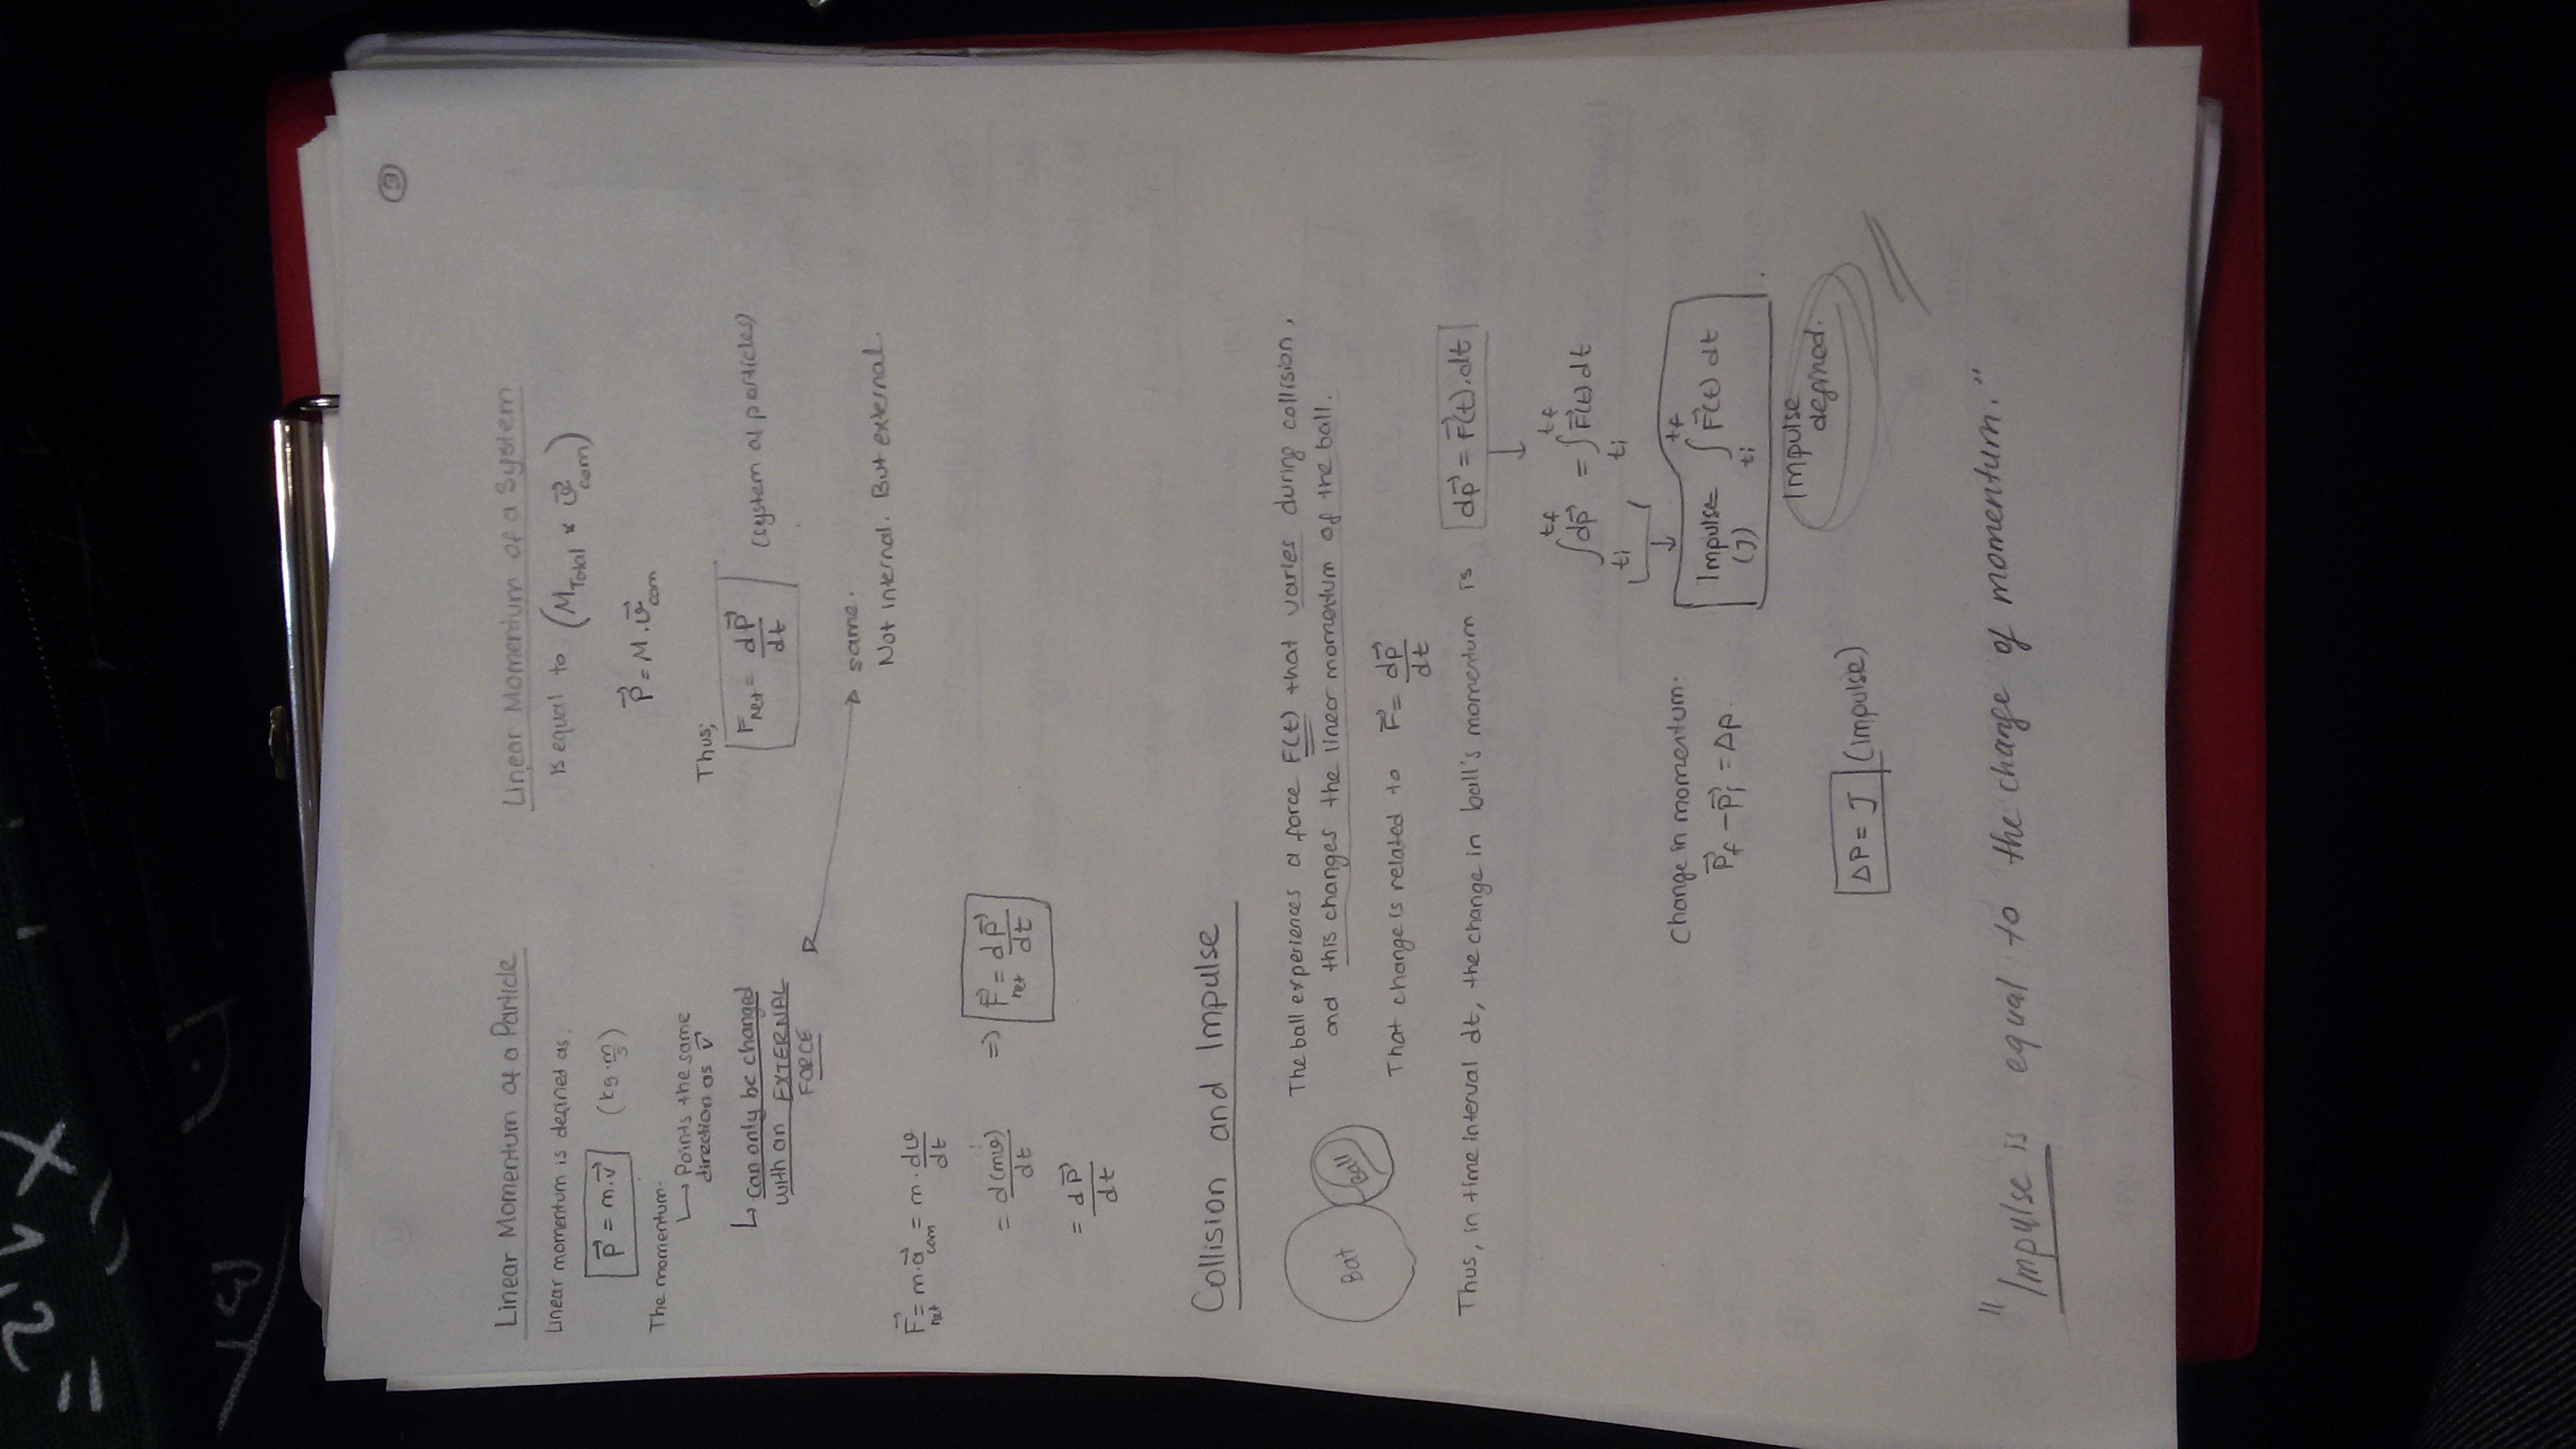 X1,2 =
③
Linear Momentum of a Particle
Linear momentum is defined as.
p⃗ = m.v⃗ (kg.m/s)
The momentum.
↳ Points the same
direction as v⃗
↳ can only be changed
with an EXTERNAL
FORCE
Linear Momentum of a System
is equal to (M_Total * v⃗_com)
P⃗ = M.v⃗_com
Thus;
F_net = dP⃗/dt (system of particles)
same.
Not internal. But external.
F⃗_net = m.a⃗_com = m.dv/dt
= d(mv)/dt => F⃗_net = dP⃗/dt
= dP⃗/dt
Collision and Impulse
Bat Ball
The ball experiences a force F(t) that varies during collision,
and this changes the linear momentum of the ball.
That change is related to F⃗ = dp⃗/dt
Thus, in time interval dt, the change in ball's momentum is dp⃗ = F⃗(t).dt
∫_ti^tf dp⃗ = ∫_ti^tf F⃗(t) dt
Change in momentum.
p⃗_f - p⃗_i = Δp.
Impulse = ∫_ti^tf F⃗(t) dt
(J)
Impulse
defined.
ΔP = J (impulse)
"Impulse is equal to the change of momentum."